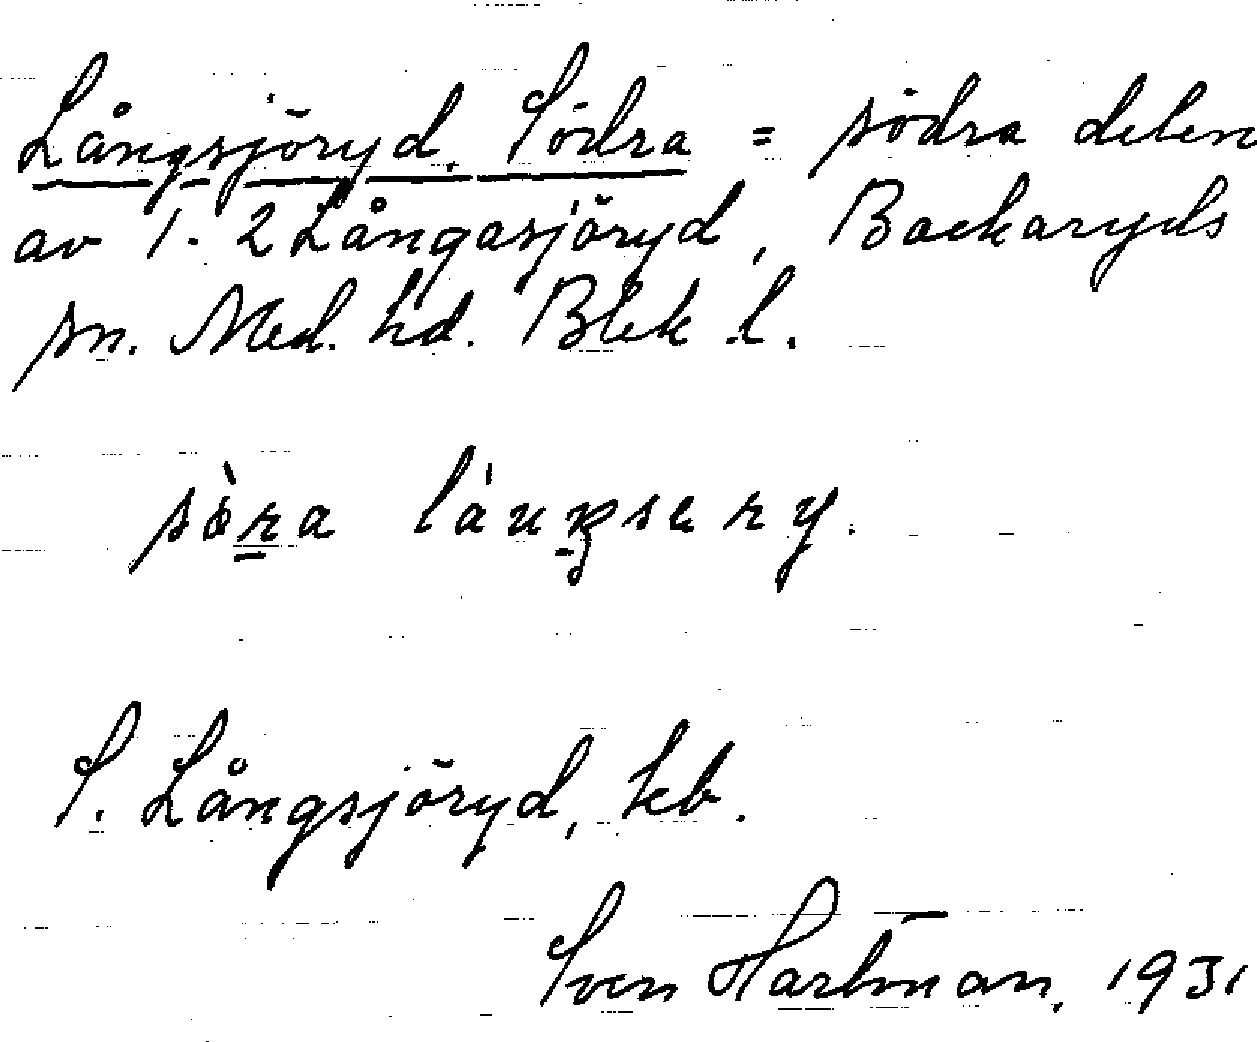 Långsjöryd, Södra = södra delen
av 1-2 Långasjöryd, Backaryds
sn. Med. hd. Blek. l.
S. Långsjöryd, kb.
Sven Hartman, 1931